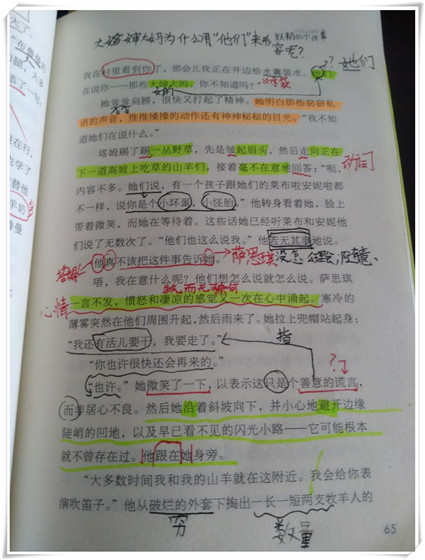 大婶婶们为什么用“他们”来形容呢？
妖精的小孩
？她们
我在村里看到你了，那会儿我正在井边给水囊装水。
在说你——那些大婶大妈。你不知道吗？”
她耸耸肩膀，很快又打起了精神。她明白那些窃窃私
语的声音，推推搡搡的动作还有神神秘秘的目光。“我不知
道她们在说什么。”
塔姆踢了踢一丛野草，然后先是皱起眉头，然后走向正在
下一道高坡上吃草的山羊们，接着毫不在意地回答：“呃，
动词
内容不多。她们说，有一个孩子跟她们的莱布啦安妮啦都
不一样，说你是个小坏蛋，小怪胎。”他转身看着她，脸上
带着微笑，而她在等待着。这些话她已经听莱布和安妮他
们说了无数次了。“他们也这么说我。”他若无其事地说。
他真不该把这件事告诉她。
萨思琪
没怎么理会，在意、
塔姆
唔，我在意什么呢？他们想怎么说就怎么说。萨思琪
心情
一言不发，愤怒和凄凉的感觉又一次在心中涌起。寒冷的
薄雾突然在他们周围升起，然后雨来了。她拉上兜帽站起身：
“我还有活儿要干，我要走了。”
指
“你也许很快还会再来的。”
“也许。”她微笑了一下，以表示这只是个善意的谎言，
而非居心不良。然后她沿着斜坡向下，并小心地避开边缘
陡峭的凹地，以及早已看不见的闪光小路——它可能根本
就不曾存在过。他跟在她身旁。
“大多数时间我和我的山羊就在这附近。我会给你表
演吹笛子。”他从破烂的外套下掏出一长一短两支牧羊人的
穷
数量
65